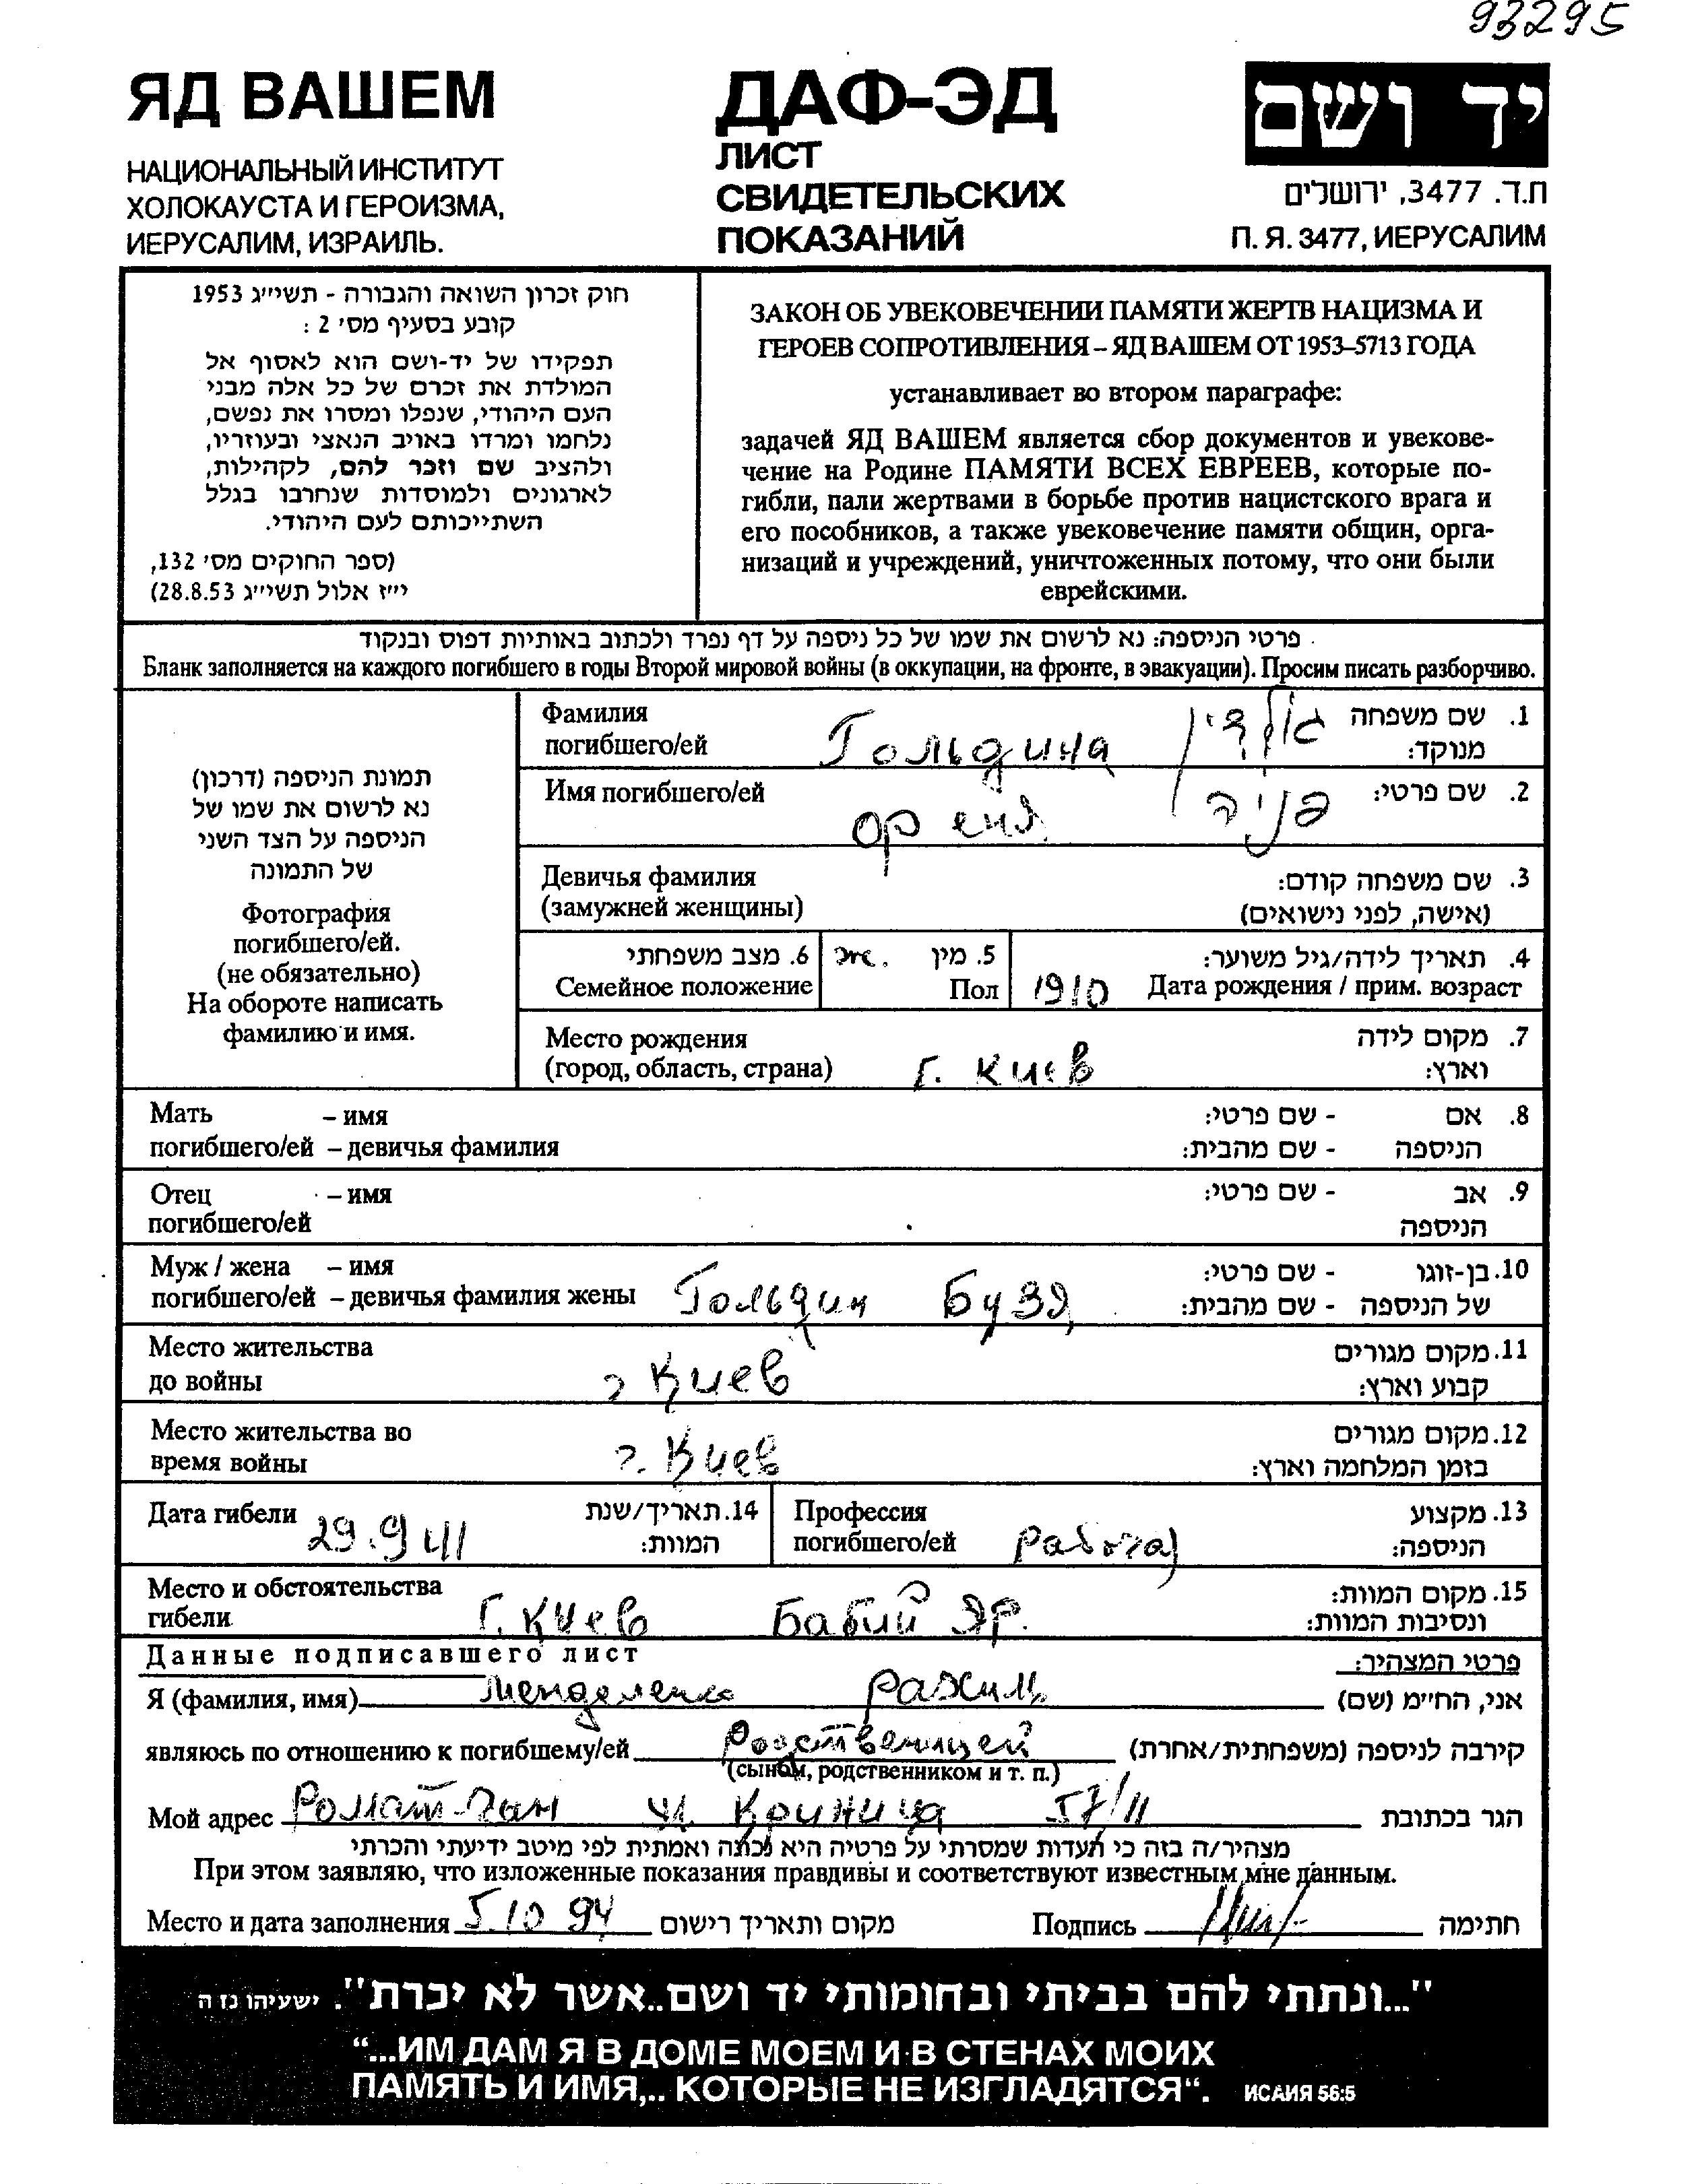 93295
ЯД ВАШЕМ
НАЦИОНАЛЬНЫЙ ИНСТИТУТ
ХОЛОКАУСТА И ГЕРОИЗМА,
ИЕРУСАЛИМ, ИЗРАИЛЬ.
ДАФ-ЭД
ЛИСТ
СВИДЕТЕЛЬСКИХ
ПОКАЗАНИЙ
יד ושם
ת.ד. 3477, ירושלים
П. Я. 3477, ИЕРУСАЛИМ
חוק זכרון השואה והגבורה - תשי״ג 1953
קובע בסעיף מס׳ 2 :
תפקידו של יד-ושם הוא לאסוף אל
המולדת את זכרם של כל אלה מבני
העם היהודי, שנפלו ומסרו את נפשם,
נלחמו ומרדו באויב הנאצי ובעוזריו,
ולהציב שם וזכר להם, לקהילות,
לארגונים ולמוסדות שנחרבו בגלל
השתייכותם לעם היהודי.
(ספר החוקים מס׳ 132,
י״ז אלול תשי״ג 28.8.53)
ЗАКОН ОБ УВЕКОВЕЧЕНИИ ПАМЯТИ ЖЕРТВ НАЦИЗМА И
ГЕРОЕВ СОПРОТИВЛЕНИЯ – ЯД ВАШЕМ ОТ 1953–5713 ГОДА
устанавливает во втором параграфе:
задачей ЯД ВАШЕМ является сбор документов и увекове-
чение на Родине ПАМЯТИ ВСЕХ ЕВРЕЕВ, которые по-
гибли, пали жертвами в борьбе против нацистского врага и
его пособников, а также увековечение памяти общин, орга-
низаций и учреждений, уничтоженных потому, что они были
еврейскими.
פרטי הניספה: נא לרשום את שמו של כל ניספה על דף נפרד ולכתוב באותיות דפוס ובנקוד
Бланк заполняется на каждого погибшего в годы Второй мировой войны (в оккупации, на фронте, в эвакуации). Просим писать разборчиво.
תמונת הניספה (דרכון)
נא לרשום את שמו של
הניספה על הצד השני
של התמונה
Фотография
погибшего/ей.
(не обязательно)
На обороте написать
фамилию и имя.
Фамилия Гольдина גולדין 1. שם משפחה
погибшего/ей מנוקד:
Имя погибшего/ей Френя פניה 2. שם פרטי:
Девичья фамилия 3. שם משפחה קודם:
(замужней женщины) (אישה, לפני נישואים)
6. מצב משפחתי ж. 5. מין 4. תאריך לידה/גיל משוער:
Семейное положение Пол 1910 Дата рождения / прим. возраст
Место рождения 7. מקום לידה
(город, область, страна) г. Киев וארץ:
Мать – имя - שם פרטי: 8. אם
погибшего/ей – девичья фамилия - שם מהבית: הניספה
Отец – имя - שם פרטי: 9. אב
погибшего/ей הניספה
Муж / жена – имя - שם פרטי: 10. בן-זוגו
погибшего/ей – девичья фамилия жены Гольдин Бузя - שם מהבית: של הניספה
Место жительства 11. מקום מגורים
до войны г Киев קבוע וארץ:
Место жительства во 12. מקום מגורים
время войны г. Киев בזמן המלחמה וארץ:
Дата гибели 29.9 41 14. תאריך/שנת המוות:
Профессия 13. מקצוע
погибшего/ей הניספה:
Место и обстоятельства 15. מקום המוות:
гибели г. Киев Бабий Яр. ונסיבות המוות:
Данные подписавшего лист פרטי המצהיר:
Я (фамилия, имя) Рахиль אני, הח״מ (שם)
являюсь по отношению к погибшему/ей Родственницей קירבה לניספה (משפחתית/אחרת)
(сыном, родственником и т. п.)
Мой адрес Ромат-Ган ул. Криница 57/11 הגר בכתובת
מצהיר/ה בזה כי העדות שמסרתי על פרטיה היא נכונה ואמתית לפי מיטב ידיעתי והכרתי
При этом заявляю, что изложенные показания правдивы и соответствуют известным мне данным.
Место и дата заполнения 5.10 94 מקום ותאריך רישום Подпись חתימה
"...ונתתי להם בביתי ובחומותי יד ושם..אשר לא יכרת". ישעיהו נז ה
“...ИМ ДАМ Я В ДОМЕ МОЕМ И В СТЕНАХ МОИХ
ПАМЯТЬ И ИМЯ,.. КОТОРЫЕ НЕ ИЗГЛАДЯТСЯ“. ИСАИЯ 56:5